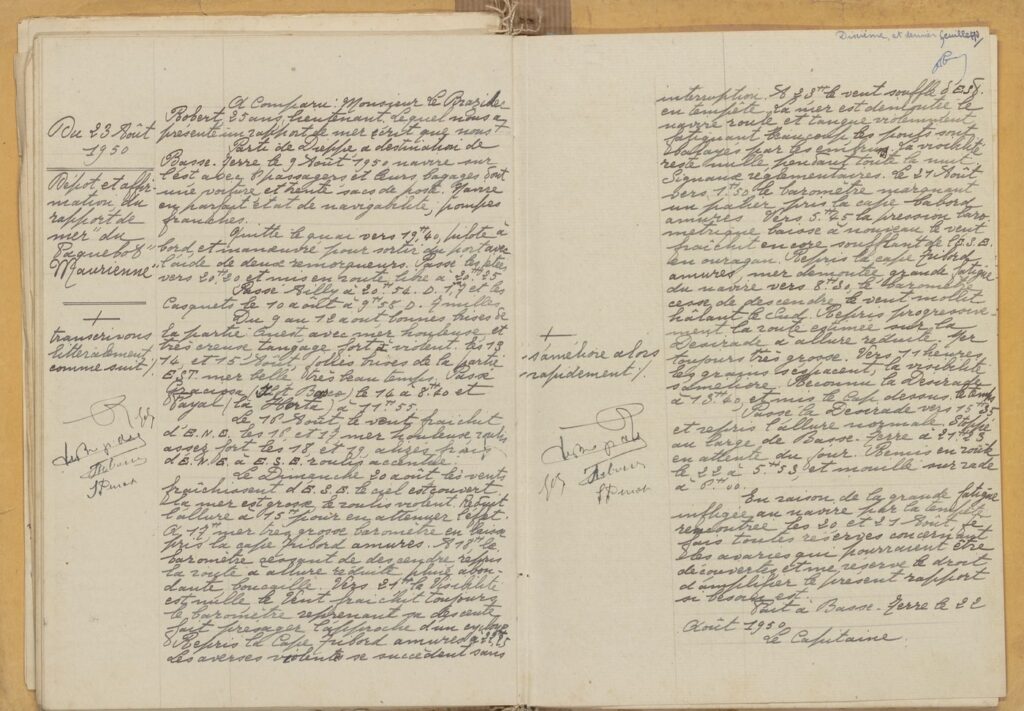 Du 23 Août
1950
Dépôt et affir-
mation du
rapport de
mer du
Paquebot
"Maurienne"
+
transcrivons
littéralement
comme suit:/.
A Comparu: Monsieur Le Brazidec
Robert, 25 ans, lieutenant lequel nous a
présenté un rapport de mer écrit que nous
Parti de Dieppe à destination de
Basse-Terre le 9 Août 1950 navire sur
lest avec 8 passagers et leurs bagages soit
une voiture et trente sacs de poste. Navire
en parfait état de navigabilité, pompes
franches.
Quitté le quai vers 19h40, pilote à
bord, et manœuvré pour sortir du port avec
l'aide de deux remorqueurs. Passé les jetées
vers 20h20 et mis en route libre à 20h25
Passé Ailly à 20h54. D. 1,7 et les
Casquets le 10 août à 9h58 D. 9 milles
Du 9 au 12 août bonnes brises de
la partie Ouest avec mer houleuse et
très creuse tangage fort à violent, les 13
14 et 15 Août jolies brises de la partie
EST mer belle. Très beau temps. Passé
le 14 à 8h40 et
Fayal (la Horta) à 11h55.
Le 16 Août, le vent fraîchit
d'E.N.E. les 18 et 19 mer houleuse roulis
assez fort les 18 et 19, alizés frais
d'E.N.E à E.S.E. roulis accentué.
Le Dimanche 20 août les vents
fraîchissent d'E.S.E. le ciel est couvert
la mer est grosse le roulis violent. Réduit
l'allure à 15h pour en atténuer l'effet.
A 17h mer très grosse baromètre en baisse
pris la cape tribord amures. A 18h le
baromètre cessant de descendre repris
la route à allure réduite pluie abon-
dante, boucaille. Vers 21h la visibilité
est nulle, le vent fraîchit toujours
le baromètre reprenant sa descente
fait présager l'approche d'un cyclone
Repris la Cape tribord amures à
Les averses violentes se succèdent sans
Dixième, et dernier feuillet
interruption. A 23h le vent souffle d'ESE.
en tempête la mer est démontée le
navire route et tangue violemment
fatiguant beaucoup les ponts sont
balayés par les embruns, la visibilité
reste nulle pendant toute la nuit
Signaux réglementaires. Le 21 Août
vers 1h50 le baromètre marquant
un palier pris la cape babord
amures Vers 5h45 la pression baro-
métrique baisse à nouveau le vent
fraîchit encore soufflant de l'E.S.E.
en ouragan. Repris la cape tribord
amures, mer démontée grande fatigue
du navire vers 8h30, le baromètre
cesse de descendre, le vent mollit
hâlant le Sud. Repris progressive-
ment la route estimée sur la
Désirade à allure réduite mer
toujours très grosse. Vers 11 heures
les grains s'espacent, la visibilité
s'améliore. Reconnu la Désirade
à 13h40, et mis le Cap dessus. le temps
+
s'améliore alors
rapidement:/.
Passé la Désirade vers 15h35
et repris l'allure normale. Stoppé
au large de Basse-Terre à 21h23
en attente du jour. Remis en route
le 22 à 5h53, et mouillé sur rade
à 6h00.
En raison de la grande fatigue
infligée au navire par la tempête
rencontrée les 20 et 21 Août, je
fais toutes réserves concernant
les avaries qui pourraient être
découvertes et me réserve le droit
d'amplifier le présent rapport
si besoin est.
Fait à Basse-Terre le 22
Août 1950
Le Capitaine.